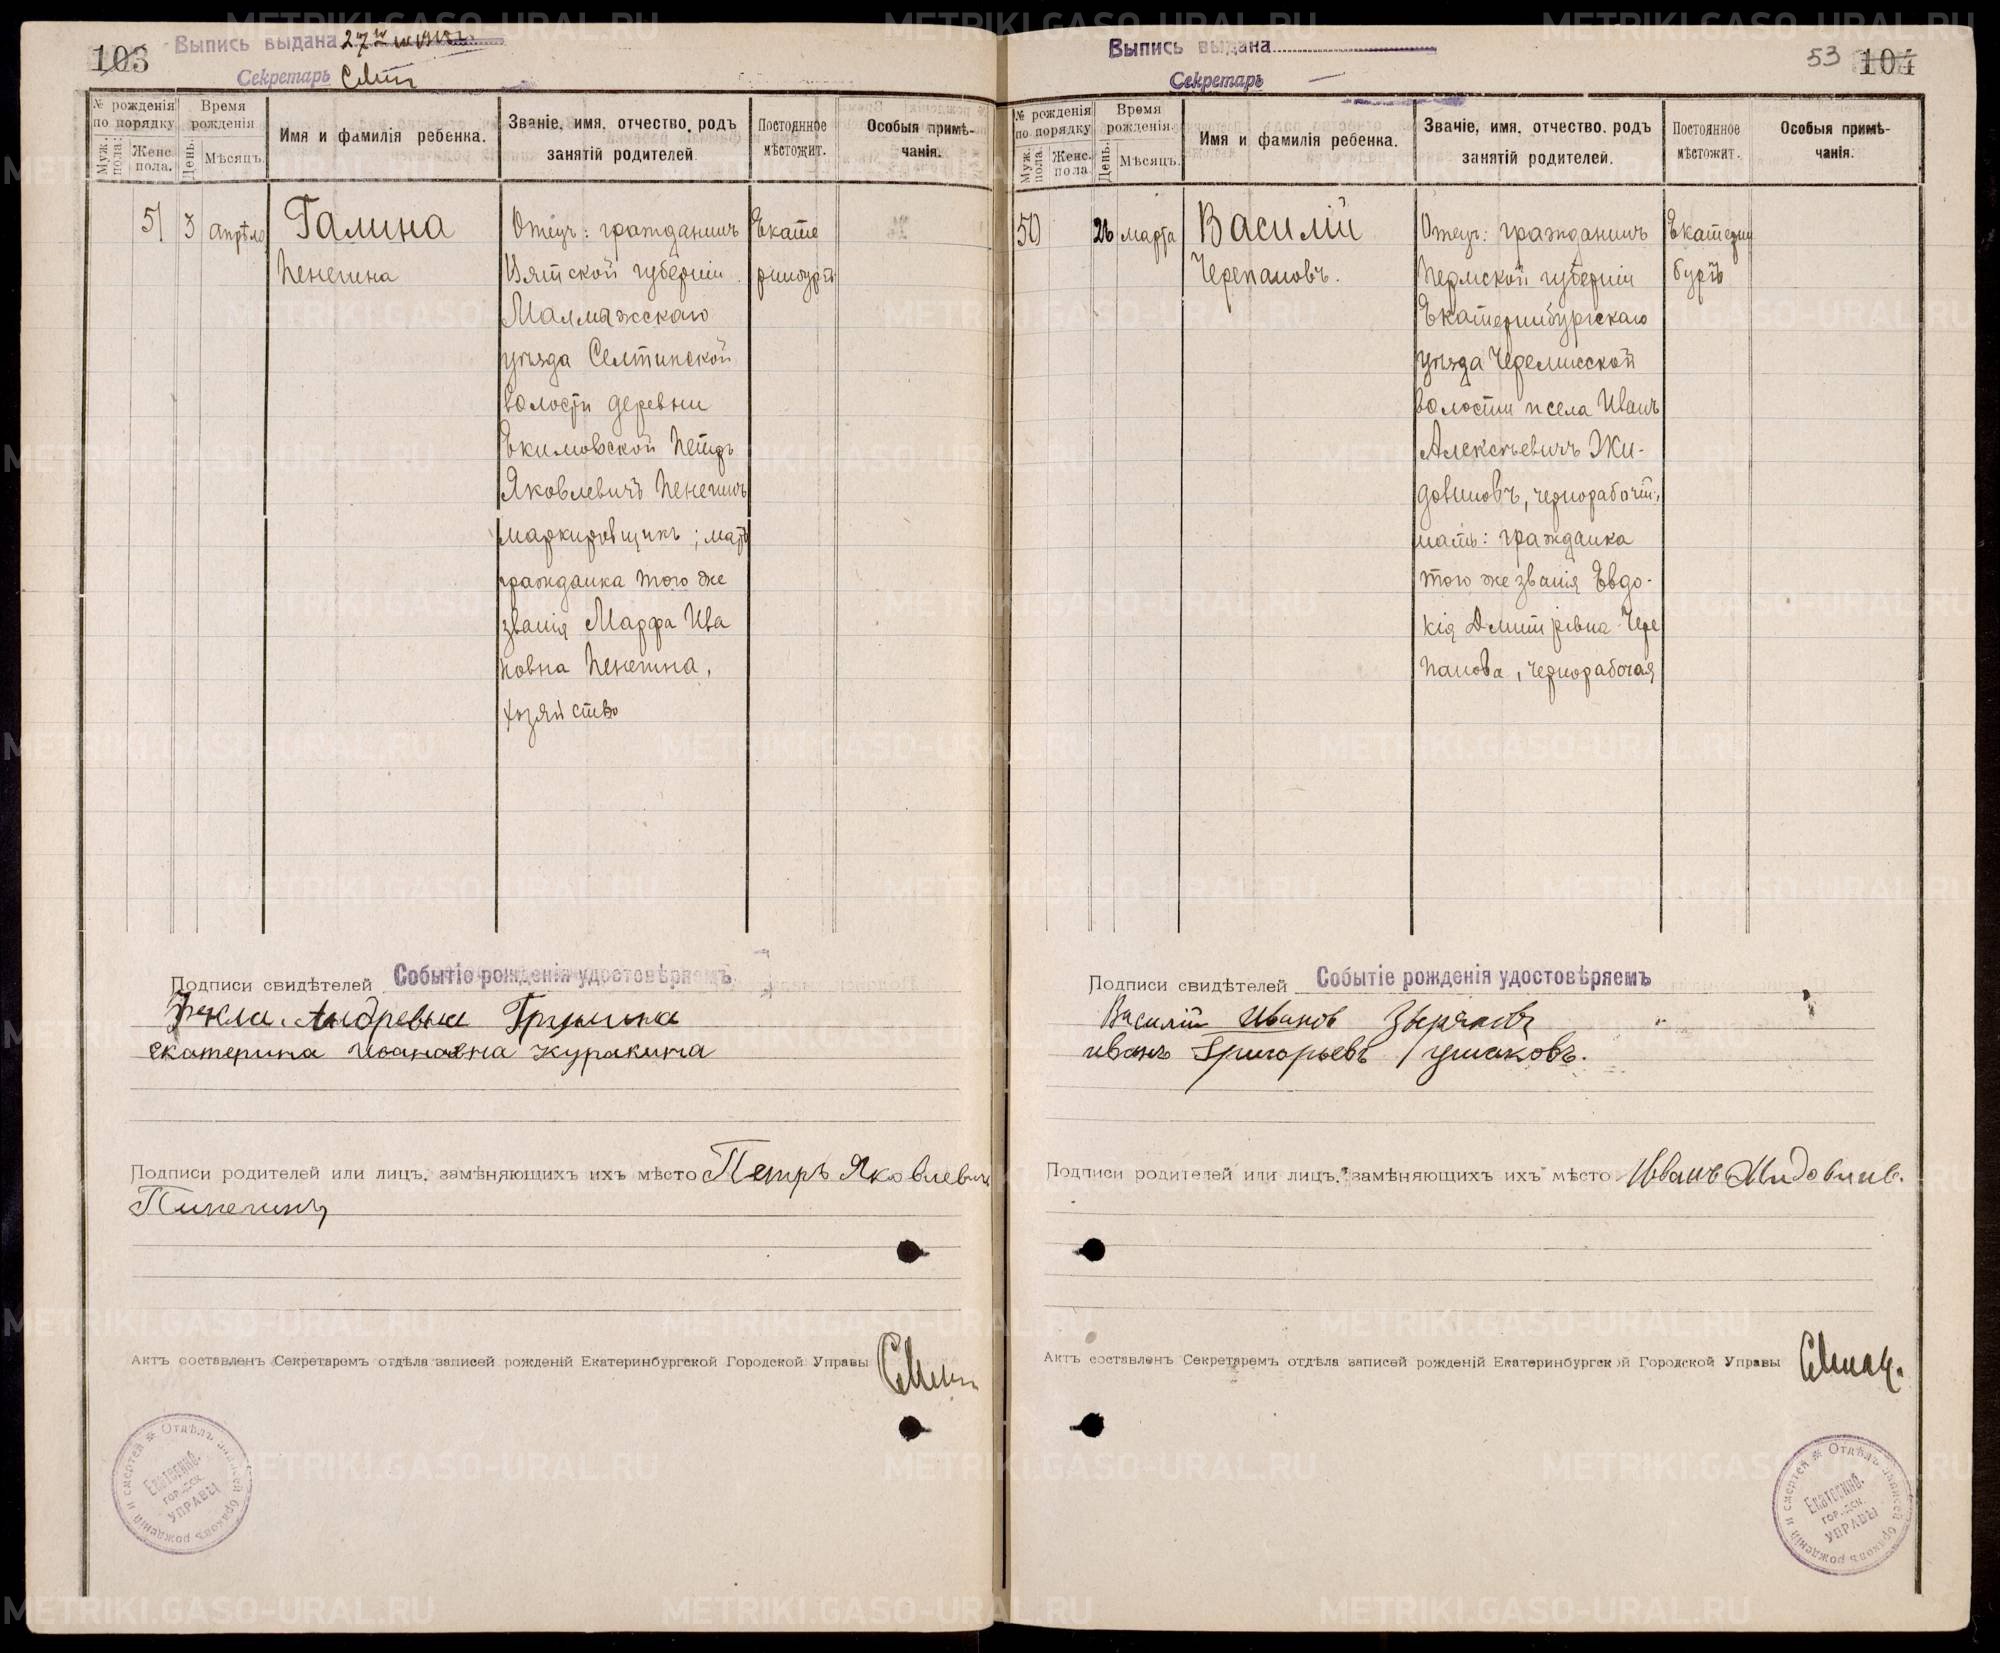 103
Выпись выдана 27го
Секретарь
№ рожденія по порядку
Муж. пола.
Женс. пола.
Время рожденія
День.
Мѣсяцъ.
Имя и фамилія ребенка.
Званіе, имя, отчество, родъ занятій родителей.
Постоянное мѣстожит.
Особыя примѣчанія.
51
3
апрѣля
Галина
Пенегина
Отецъ: гражданинъ
Вятской губерніи
Малмыжскаго
уѣзда Селтинской
волости деревни
Екимовской Петръ
Яковлевичъ Пенегинъ
маркировщикъ; мать
гражданка того же
званія Марфа Ива
новна Пенегина,
хозяйство
Екате
ринбургъ
Подписи свидѣтелей Событіе рожденія удостовѣряемъ
Фекла Андревна
Екатерина Ивановна Куракина
Подписи родителей или лицъ, замѣняющихъ ихъ мѣсто Петръ Яковлевичъ
Пинегинъ
Актъ составленъ Секретаремъ отдѣла записей рожденій Екатеринбургской Городской Управы
Отдѣлъ записей браковъ рожденій и смертей
Екатеринб.
гор-дск.
УПРАВЫ
53 104
Выпись выдана
Секретарь
№ рожденія по порядку
Муж. пола
Женс. пола
Время рожденія.
День.
Мѣсяцъ.
Имя и фамилія ребенка.
Званіе, имя, отчество, родъ занятій родителей.
Постоянное мѣстожит.
Особыя примѣчанія.
50
26
марта
Василій
Черепановъ.
Отецъ: гражданинъ
Пермской губерніи
Екатеринбургскаго
уѣзда Черемисской
волости и села Иванъ
Алексѣевичъ Жи-
довиновъ, чернорабочій,
мать: гражданка
того же званія Евдо-
кія Дмитрівна Чере
панова, чернорабочая
Екатерин
бургъ
Подписи свидѣтелей Событіе рожденія удостовѣряемъ
Василій Иванов Зыряновъ
иванъ Григорьевъ ушаковъ.
Подписи родителей или лицъ, замѣняющихъ ихъ мѣсто Иванъ
Актъ составленъ Секретаремъ отдѣла записей рожденій Екатеринбургской Городской Управы
Отдѣлъ записей браковъ рожденій и смертей
Екатеринб.
гор-дск.
УПРАВЫ
METRIKI.GASO-URAL.RU